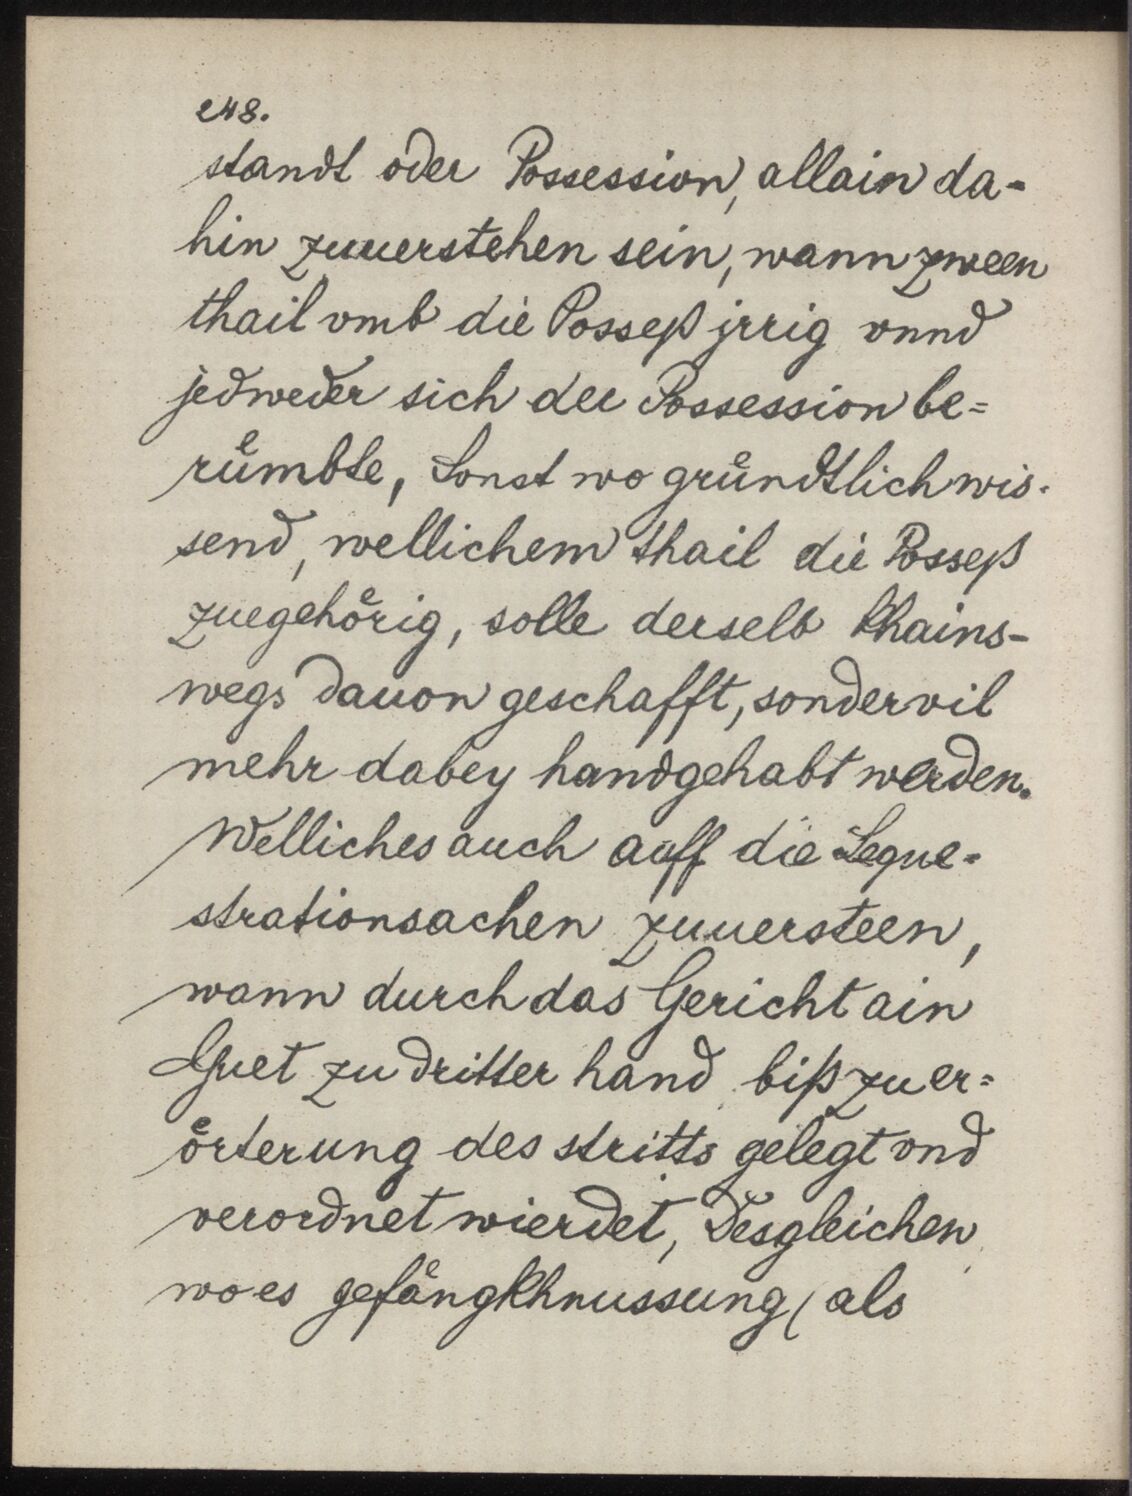 248.
standt oder Possession, allain da-
hin zuuerstehen sein, wann zween
thail vmb die Posseß jrrig vnnd
jedweder sich der Possession be=
růmbte, Sonst wo gründtlich wis-
send, wellichem thail die Posseß
zuegehörig, solle derselb khains-
wegs dauon geschafft, sonder vil
mehr dabey handgehabt werden.
Welliches auch auff die Seque=
strationsachen zuuersteen,
wann durch das Gericht ain
Guet zu dritter hand biß zu er=
örterung des stritts gelegt vnd
verordnet wierdet, Desgleichen
wo es gefängkhnussung (als